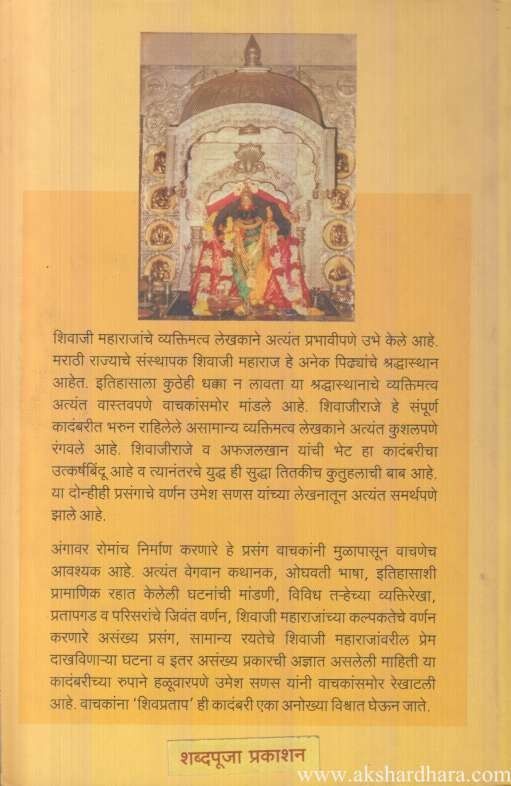 शिवाजी महाराजांचे व्यक्तिमत्व लेखकाने अत्यंत प्रभावीपणे उभे केले आहे.
मराठी राज्याचे संस्थापक शिवाजी महाराज हे अनेक पिढ्यांचे श्रद्धास्थान
आहेत. इतिहासाला कुठेही धक्का न लावता या श्रद्धास्थानाचे व्यक्तिमत्व
अत्यंत वास्तवपणे वाचकांसमोर मांडले आहे. शिवाजीराजे हे संपूर्ण
कादंबरीत भरुन राहिलेले असामान्य व्यक्तिमत्व लेखकाने अत्यंत कुशलपणे
रंगवले आहे. शिवाजीराजे व अफजलखान यांची भेट हा कादंबरीचा
उत्कर्षबिंदू आहे व त्यानंतरचे युद्ध ही सुद्धा तितकीच कुतुहलाची बाब आहे.
या दोन्हीही प्रसंगाचे वर्णन उमेश सणस यांच्या लेखनातून अत्यंत समर्थपणे
झाले आहे.
अंगावर रोमांच निर्माण करणारे हे प्रसंग वाचकांनी मुळापासून वाचणेच
आवश्यक आहे. अत्यंत वेगवान कथानक, ओघवती भाषा, इतिहासाशी
प्रामाणिक रहात केलेली घटनांची मांडणी, विविध तऱ्हेच्या व्यक्तिरेखा,
प्रतापगड व परिसरांचे जिवंत वर्णन, शिवाजी महाराजांच्या कल्पकतेचे वर्णन
करणारे असंख्य प्रसंग, सामान्य रयतेचे शिवाजी महाराजांवरील प्रेम
दाखविणाऱ्या घटना व इतर असंख्य प्रकारची अज्ञात असलेली माहिती या
कादंबरीच्या रुपाने हळूवारपणे उमेश सणस यांनी वाचकांसमोर रेखाटली
आहे. वाचकांना 'शिवप्रताप' ही कादंबरी एका अनोख्या विश्वात घेऊन जाते.
शब्दपूजा प्रकाशन
www.akshardhara.com